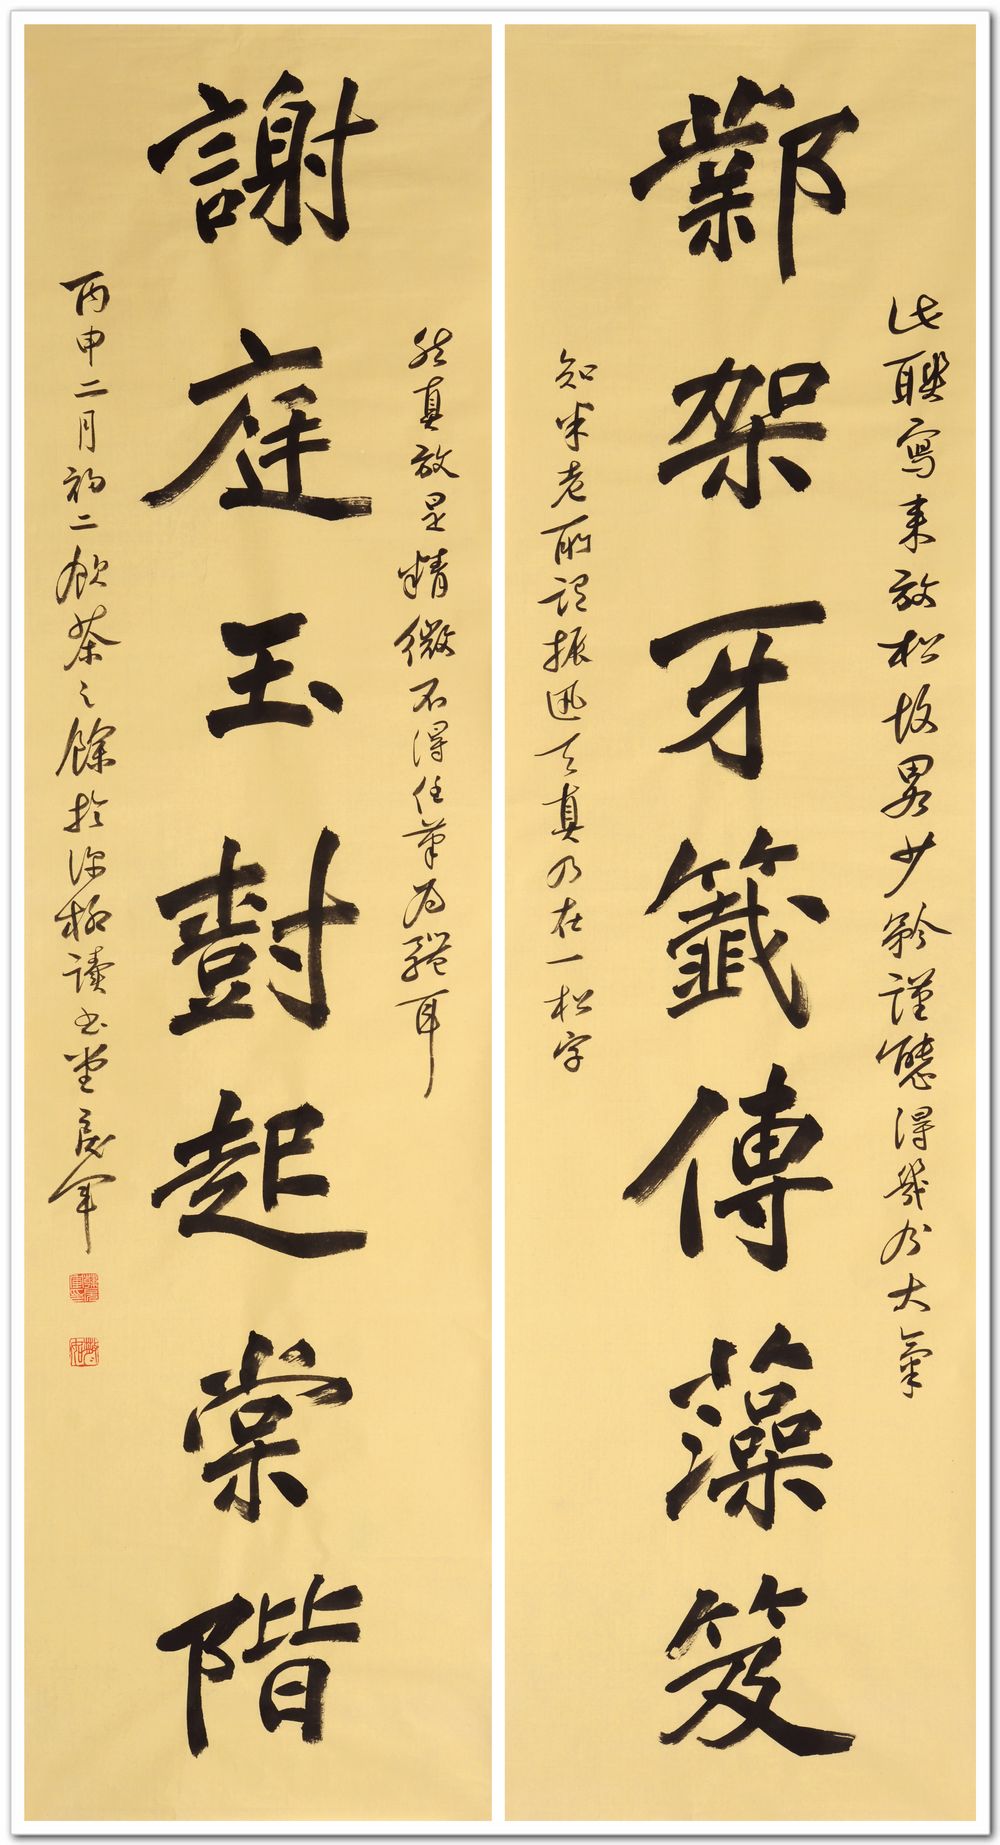 鄴架牙籤傳藻笈
此聯寫来放松故畧少矜謹得幾分大氣
知米老所謂振迅天真乃在一松字
謝庭玉樹起棠階
然真放是精微不得任筆為體耳
丙申二月初二飲茶之餘於深柳讀書堂軍